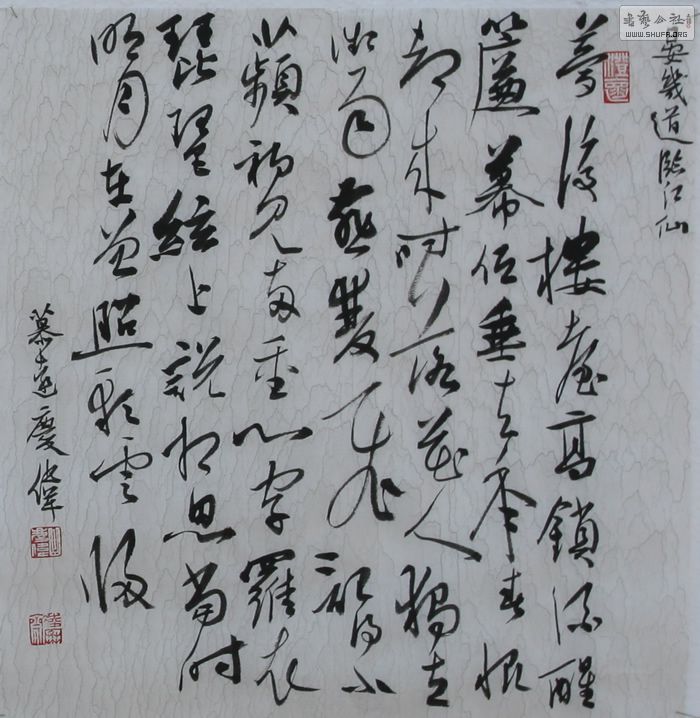 書藝公社
WWW.SHUFA.ORG
晏幾道臨江仙
夢後樓臺高鎖酒醒
簾幕低垂去年春恨
却來時落花人獨立
微雨燕雙飛記得小
蘋初見兩重心字羅衣
琵琶絃上說相思當時
明月在曾照彩雲歸
慶偉